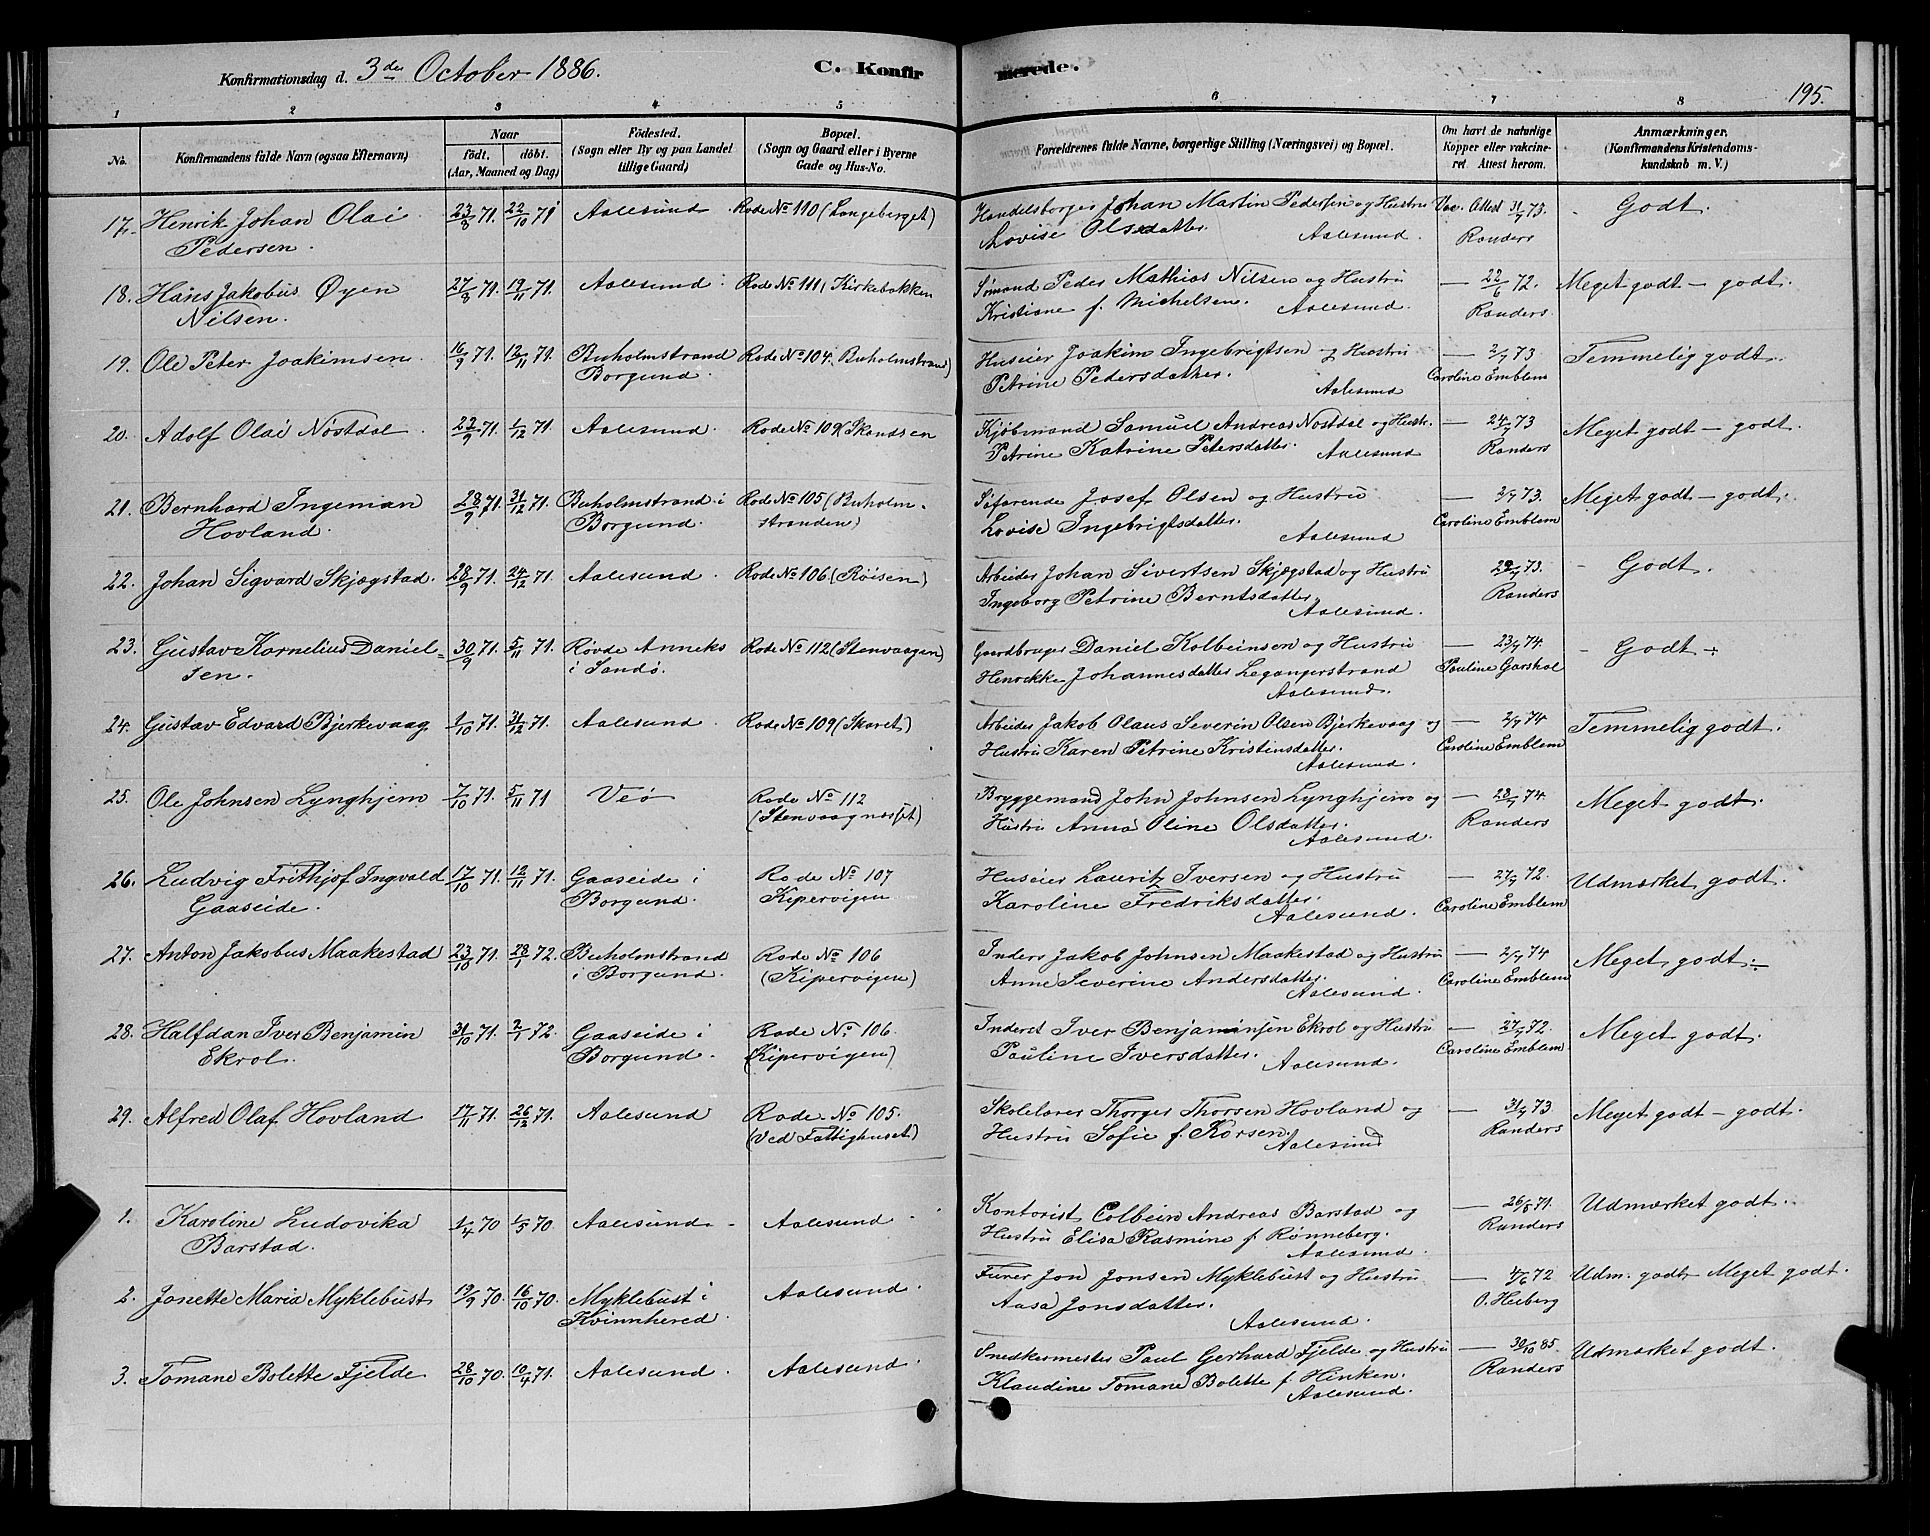 Konfirmationsdag d. 3die October 1886. C. Konfirmerede. 195.
1 2 3 4 5 6 7 8
No. Konfirmandens fulde Navn (ogsaa Efternavn) Naar födt. döbt. (Aar, Maaned og Dag) Födested. (Sogn eller By og paa Landet tillige Gaard) Bopæl. (Sogn og Gaard eller i Byerne Gade og Hus-No. Forældrenes fulde Navne, borgerlige Stilling (Næringsvei) og Bopæl. Om havt de naturlige Kopper eller vakcineret. Attest herom. Anmærkninger. (Konfirmandens Kristendomskundskab m. V.)
17. Henrik Johan Olai 23/8 71. 22/10 71 Aalesund. Rode No 110 (Longeberget) Handelsborger Johan Martin Pedersen og Hustru Vac. Attest 31/7 73. Godt.
Pedersen. Lovise Olsdatter. Aalesund. Randers
18. Hans Jakobus Øyen 27/8 71. 19/11 71. Aalesund Rode No 111 (Kirkebakken Sømand Peder Mathias Nilsen og Hustru — 22/6 72. Meget godt - godt.
Nilsen. Kristiane f. Michelsen. Aalesund. Randers.
19. Ole Peter Joakimsen. 16/9 71. 12/11 71. Buholmstrand Rode No 104. Buholmstrand) Huseier Joakim Ingebrigtsen og Hustru — 2/7 73 Temmelig godt.
Borgund. Petrine Pedersdatter. Aalesund Caroline Emblem
20. Adolf Olai Nöstdal 22/9 71. 1/12 71. Aalesund. Rode No 109 (Skandsen Kjöbmand Samuel Andreas Nostdal og Hustr. — 24/7 73 Meget godt - godt.
Petrine Katrine Petersdatter. Aalesund Randers
21. Bernhard Ingeman 28/9 71. 31/12 71. Buholmstrand i Rode No 105 (Buholm- Söfarende Josef Olsen og Hustru — 2/7 73. Meget godt - godt.
Hovland. Borgund. stranden) Lovise Ingebrigtsdatter. Aalesund Caroline Emblem
22. Johan Sigvard Skjægstad. 28/9 71. 24/12 71. Aalesund. Rode No 106 (Röisen) Arbeider Johan Sivertsen Skjægstad og Hustru 29/7 73. - Godt.
Ingeborg Petrine Berntsdatter. Aalesund. Randers
23. Gustav Kornelius Daniel= 30/9 71. 5/11 71. Røvde Anneks Rode No 112 (Stenvaagen) Gaardbruger Daniel Kolbeinsen og Hustru — 23/7 74. - Godt -
sen. i Sandö. Johannesdatter Leganger strand Aalesund. Pauline Garshol
24. Gustav Edvard Bjerkevaag 1/10 71. 31/12 71. Aalesund. Rode No 109 (Skaret) Arbeider Jakob Olaus Severin Olsen Bjerkevaag og — 2/7 74 Temmelig godt.
Hustru Karen Petrine Kristensdatter. Aalesund. Caroline Emblem
25. Ole Johnsen Lynghjem 7/10 71. 5/11 71 Veö Rode No 112 Bryggemand John Johnsen Lynghjem og — 28/7 74. Meget godt.
(Stenvaagnæsset) Hustru Anna Oline Olsdatter. Aalesund. Randers
26. Ludvig Frithjof Ingvald 17/10 71. 12/11 71. Gaaseide i Rode No 107 Huseier Lauritz Iversen og Hustru — 27/7 72. Udmærket godt.
Gaaseide. Borgund. Kipervigen Karoline Fredriksdatter. Aalesund. Caroline Emblem
27. Anton Jakobus Maakestad 23/10 71. 28/1 72. Buholmstrand Rode No 106 Inders Jakob Johnsen Maakestad og Hustru — 2/7 74 Meget godt.
i Borgund. (Kipervigen) Anne Severine Andersdatter. Aalesund. Caroline Emblem
28. Halfdan Iver Benjamin 31/10 71. 2/1 72. Gaaseide i Rode No 106. Inderst Iver Benjaminsen Ekrol og Hustru — 27/7 72. Meget godt.
Ekrol. Borgund. (Kipervigen) Pauline Iversdatter. Aalesund. Caroline Emblem
29. Alfred Olaf Hovland 17/11 71. 26/12 71. Aalesund Rode No 105. Skolelærer Thorger Thorsen Hovland og — 31/7 73 Meget godt - godt.
(Ved Fattighuset) Hustru Sofie f. Korsen. Aalesund Randers
1. Karoline Ludovika 1/4 70 1/5 70. Aalesund Aalesund Kontorist Colbein Andreas Barstad og — 26/8 71. Udmærket godt.
Barstad. Hustru Elisa Rasmine f. Rønneberg. Aalesund. Randers
2. Jonette Maria Myklebust 19/9 70. 16/10 70. Myklebust i Aalesund. Furer Jon Jonsen Myklebust og Hustru — 4/6 72 Udm. godt, Meget godt.
Kvinnhered. Aasa Jonsdatter. Aalesund. O. Heiberg
3. Tomane Bolette Fjelde 28/10 70. 10/4 71. Aalesund. Aalesund. Snedkermester Paul Gerhard Fjelde og Hustru — 30/10 85. Udmærket godt.
Klaudine Tomane Bolette f. Hinken. Aalesund. Randers